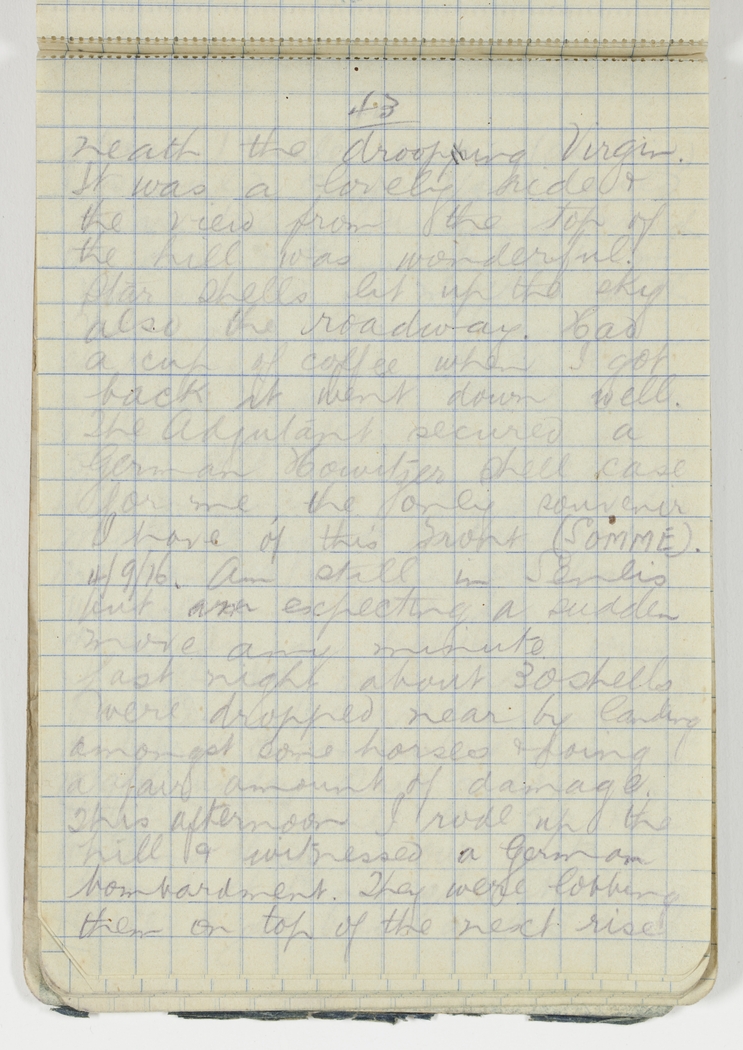 43
neath the drooping Virgin.
It was a lovely ride &
the view from the top of
the hill was wonderful.
Star shells lit up the sky
also the roadway. Had
a cup of coffee when I got
back it went down well.
The Adjutant secured a
German Howitzer shell case
for me the only souvenir
I have of this Front (SOMME).
4/9/16. Am still in Senlis
but am expecting a sudden
move any minute
Last night about 30 shells
were dropped near by landing
amongst some horses & doing
a fair amount of damage.
This afternoon I rode up the
hill & witnessed a German
bombardment. They were lobbing
them on top of the next rise